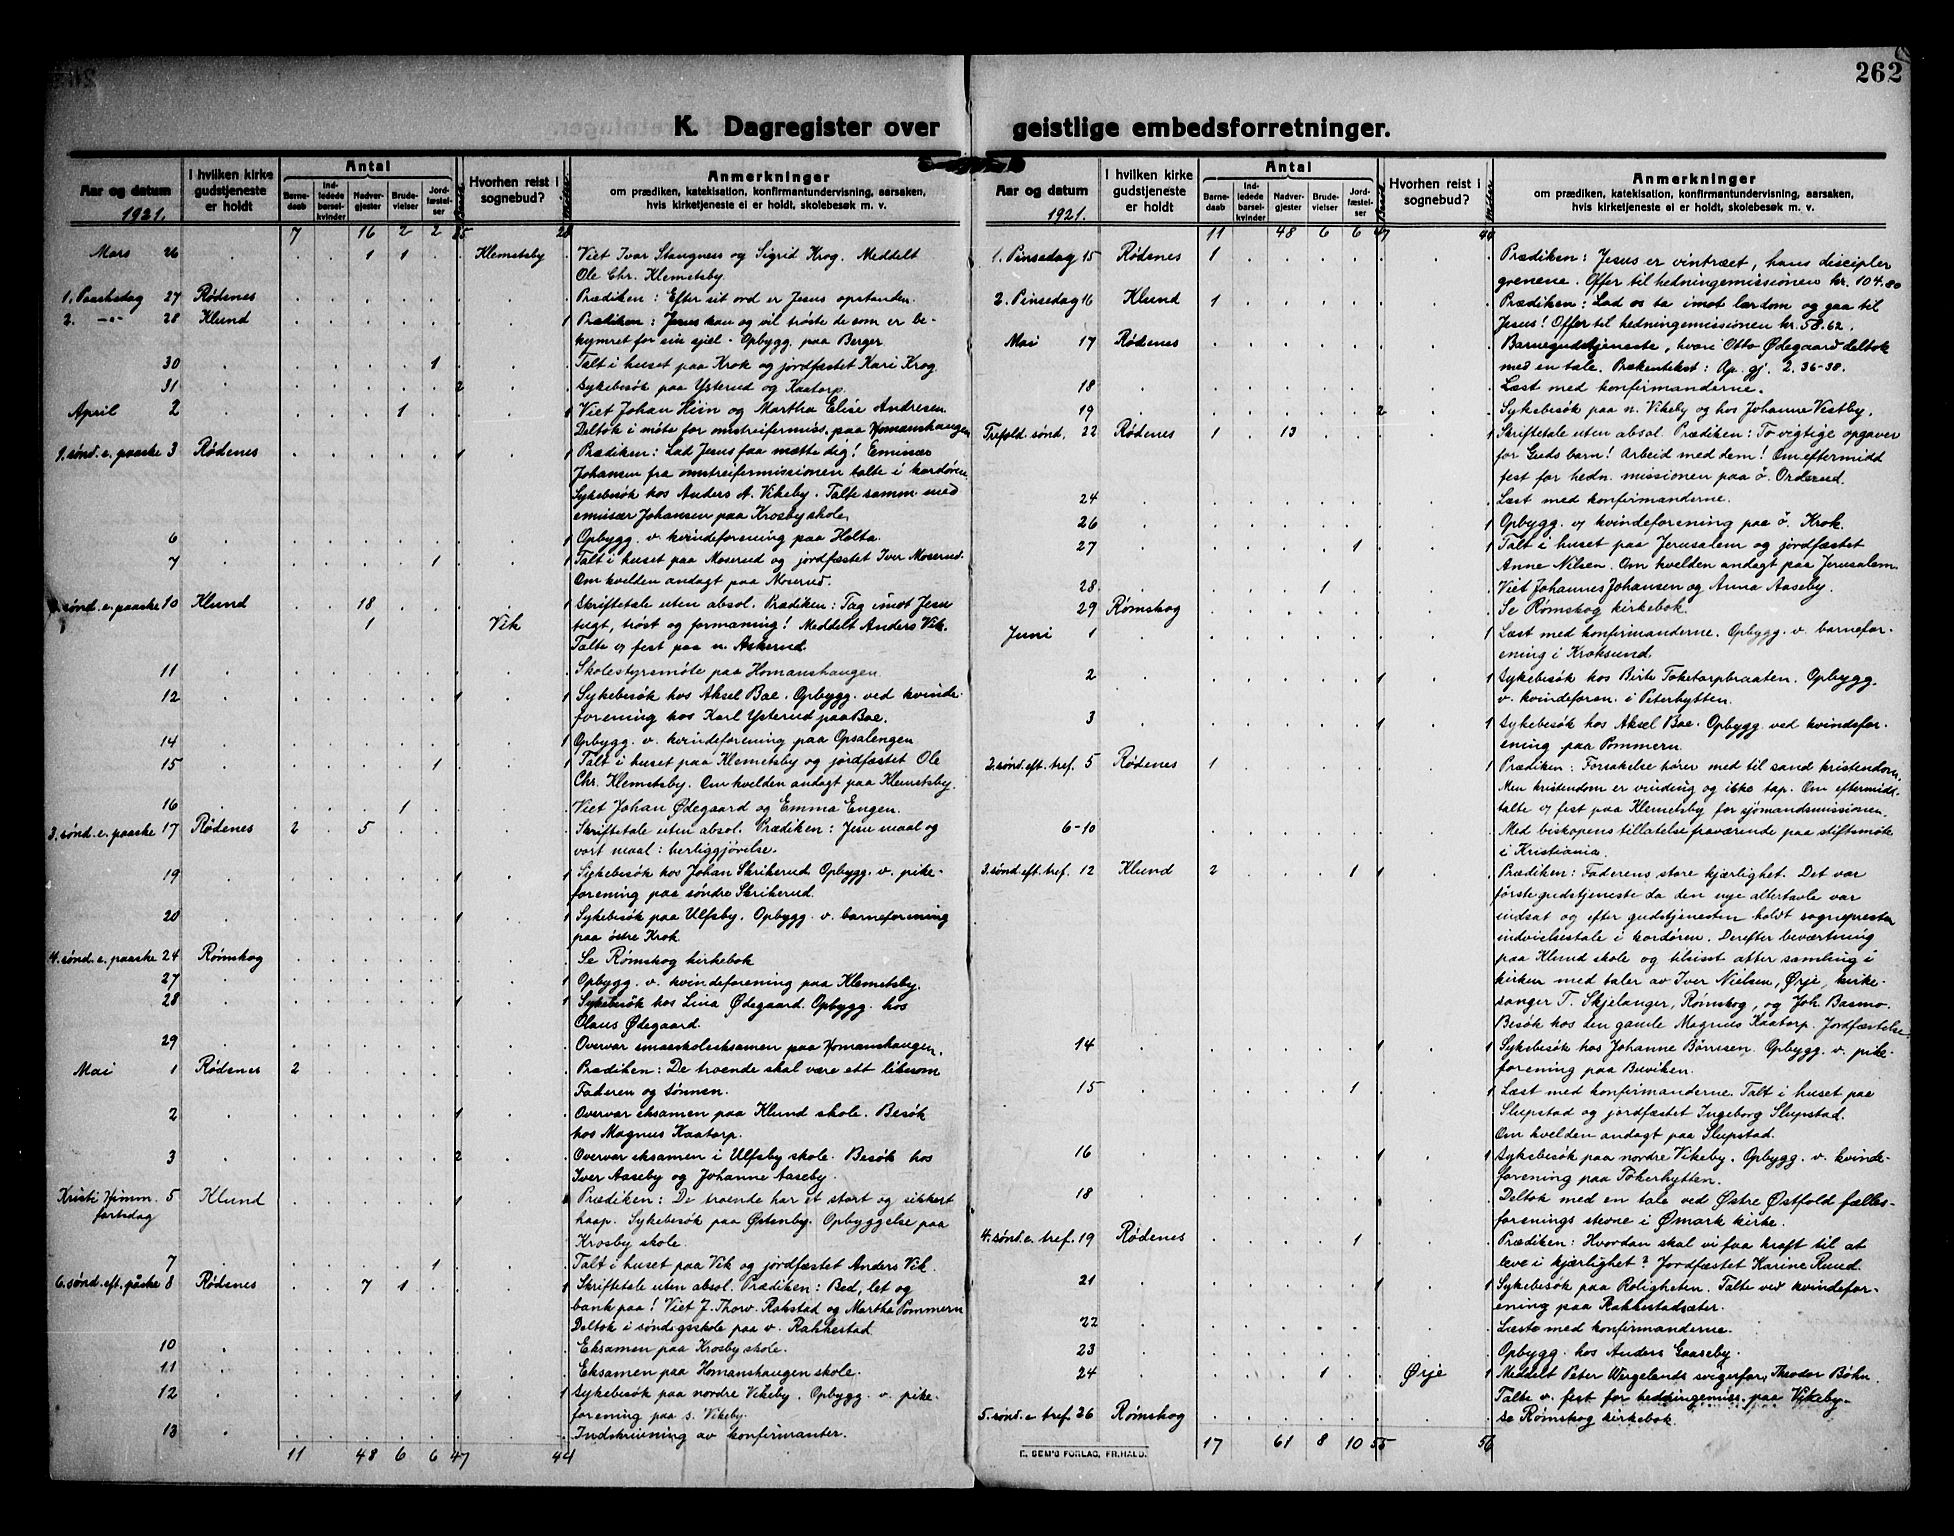 262
K. Dagregister over geistlige embedsforretninger.
Aar og datum
1921.
I hvilken kirke gudstjeneste er holdt
Antal
Barnedaab
Indledede barselkvinder
Nadvergjester
Brudevielser
Jordfæstelser
Hvorhen reist i sognebud?
Anmerkninger
om prædiken, katekisation, konfirmantundervisning, aarsaken,
hvis kirketjeneste ei er holdt, skolebesøk m. v.
7 16 2 2
Mars 26 1 1 Klemetsby Viet Ivar Stangness og Sigrid Krog. Meddelt
Ole Chr. Klemetsby.
1. Paaskedag 27 Rødenes Prædiken: Efter sit ord er Jesus opstanden.
2. -"- 28 Klund 1 Prædiken: Jesus kan og vil trøste de som er be-
kymret for sin sjæl. Opbygg. paa Berger
30 1 Talt i huset paa Krok og jordfæstet Kari Krog.
31 2 Sykebesøk paa Ysterud og Kaatorp.
April 2 1 1 Viet Johan Hiin og Martha Elise Andresen
Deltok i møte for omstreifermiss. paa Homanshaugen
1. sønd. e. paaske 3 Rødenes 1 1 Prædiken: Lad Jesus faa mætte dig! Emissær
Johansen fra omstreifermissionen talte i kordøren.
Sykebesøk hos Anders A. Vikeby. Talte samm med
emissær Johansen paa Krosby skole.
6 1 Opbygg. v. kvindeforening paa Holta.
7 1 1 Talt i huset paa Moserud og jordfæstet Iver Moserud.
Om kvelden andagt paa Moserud.
sønd. e. paaske 10 Klund 18 1 Skriftetale uten absol. Prædiken: Tag imot Jesu
1 Vik tugt, trøst og formaning! Meddelt Anders Vik.
Talte v/ fest paa n. Askerud.
11 Skolestyrsmøte paa Homanshaugen.
12 1 1 Sykebesøk hos Aksel Boe. Opbygg. ved kvinde-
forening hos Karl Ysterud paa Boe.
14 1 Opbygg. v. kvindeforening paa Opsalengen
15 1 1 Talt i huset paa Klemetsby og jordfæstet Ole
Chr. Klemetsby. Om kvelden andagt paa Klemetsby.
16 1 Viet Johan Ødegaard og Emma Engen.
3. sønd. e. paaske 17 Rødenes 2 5 Skriftetale uten absol. Prædiken: Jesu maal og
vort maal: herliggjørelse.
19 1 1 Sykebesøk hos Johan Skrikerud. Opbygg. v. pike-
forening paa søndre Skrikerud.
20 1 1 Sykebesøk paa Ulfsby. Opbygg. v. barneforening
paa østre Krok
4. sønd. e. paaske 24 Rømskog Se Rømskog kirkebok
27 1 Opbygg. v. kvindeforening paa Klemetsby.
28 1 1 Sykebesøk hos Lina Ødegaard. Opbygg. hos
Olaus Ødegaard.
29 Overvar smaaskoleeksamen paa Homanshaugen.
Mai 1 Rødenes 2 Prædiken: De troende skal være ett likesom
Faderen og sønnen.
2 1 Overvar eksamen paa Klund skole. Besøk
hos Magnus Kaatorp.
3 2 Overvar eksamen i Ulfsby skole. Besøk hos
Iver Aaseby og Johanne Aaseby.
Kristi Himm. 5 Klund 1 Prædiken: De troende har et stort og sikkert
fartsdag haap. Sykebesøk paa Østenby. Opbyggelse paa
Krosby skole.
7 1 Talt i huset paa Vik og jordfæstet Anders Vik.
6. sønd. eft. påske 8 Rødenes 7 1 1 Skriftetale uten absol. Prædiken: Bed, let og
bank paa! Viet J. Thorv. Rakstad og Martha Pommern
Deltok i søndagsskole paa v. Rakkestad
10 Eksamen paa Krosby skole.
11 Eksamen paa Homanshaugen skole.
12 1 1 Sykebesøk paa nordre Vikeby. Opbygg. v. pike-
forening paa s. Vikeby.
13 Indskrivning av konfirmanter.
11 48 6 6 47 44
Aar og datum
1921.
I hvilken kirke gudstjeneste er holdt
Antal
Barnedaab
Indledede barselkvinder
Nadvergjester
Brudevielser
Jordfæstelser
Hvorhen reist i sognebud?
Anmerkninger
om prædiken, katekisation, konfirmantundervisning, aarsaken,
hvis kirketjeneste ei er holdt, skolebesøk m. v.
11 48 6 6 47
1. Pinsedag 15 Rødenes 1 Prædiken: Jesus er vintræet, hans discipler
grenene. Offer til hedningemissionen kr. 104.80
2. Pinsedag 16 Klund 1 Prædiken: Lad os ta imot lærdom og gaa til
Jesus! Offer til hedningemissionen kr. 58.62.
Mai 17 Rødenes Barnegudstjeneste, hvori Otto Ødegaard deltok
med en tale. Prækentekst: Ap. gj. 2. 36-38.
18 Læst med konfirmanderne.
19 2 Sykebesøk paa n. Vikeby og hos Johanne Vestby.
Trefold. sønd. 22 Rødenes 1 13 1 Skriftetale uten absol. Prædiken: To vigtige opgaver
for Guds barn! Arbeid med dem! Om eftermidd
fest for hedn. missionen paa ø. Orderud.
24 Læst med konfirmanderne.
26 1 Opbygg. v/ kvindeforening paa ø. Krok.
27 1 1 Talt i huset paa Jerusalem og jordfæstet
Anne Nilsen. Om kvelden andagt paa Jerusalem.
28 1 Viet Johannes Johansen og Anna Aaseby.
29 Rømskog Se Rømskog kirkebok.
Juni 1 1 Læst med konfirmanderne. Opbygg. v. barnefor-
ening i Kroksund.
2 1 1 Sykebesøk hos Birte Toketorpbraaten. Opbygg.
v. kvindeforen. i Peterhytten.
3 1 1 Sykebesøk hos Aksel Boe. Opbygg. ved kvindefor-
ening paa Pommern.
2. sønd. eft. tref. 5 Rødenes 1 1 Prædiken: Forsakelse hører med til sand kristendom.
Men kristendom er vinding og ikke tap. Om eftermidd.
talte v/ fest paa Klemetsby for sjømandsmissionen.
6-10 Med biskopens tillatelse fraværende paa stiftsmøte
i Kristiania.
3. sønd. eft. tref. 12 Klund 2 1 1 Prædiken: Faderens store kjærlighet. Det var
første gudstjeneste da den nye altertavle var
indsat og efter gudstjenesten holdt sognepresten
indvielsestale i kordøren. Derefter beværtning
paa Klund skole og tilsist atter samling i
kirken med taler av Iver Nielsen, Ørje, kirke-
sanger T. Skjelanger, Rømskog, og Joh. Basmo.
Besøk hos den gamle Magnus Kaatorp. Jordfæstelse.
14 1 1 Sykebesøk hos Johanne Børresen. Opbygg. v. pike-
forening paa Buviken.
15 1 1 Læst med konfirmanderne. Talt i huset paa
Slupstad og jordfæstet Ingeborg Slupstad.
Om kvelden andagt paa Slupstad.
16 1 1 Sykebesøk paa nordre Vikeby. Opbygg. v. kvinde-
forening paa Tokerhytten.
18 Deltok med en tale ved Østre Østfold fælles-
forenings stevne i Ømark kirke.
4. sønd. e. tref. 19 Rødenes 1 Prædiken: Hvordan skal vi faa kraft til at
leve i kjærlighet? Jordfæstet Karine Rund.
21 1 1 Sykebesøk paa Roligheten. Talte ved kvindefor-
ening paa Rakkestadsæter.
22 Læste med konfirmanderne.
23 Opbygg. hos Anders Gaaseby.
24 1 Ørje 1 Meddelt Peter Wergelands svigerfar, Theodor Bøhn.
Talte v. fest for hedningemiss. paa Vikeby.
5. sønd. e. tref. 26 Rømskog se Rømskog kirkebok.
17 61 8 10 55 56
E. SEM'S FORLAG, FR.HALD.